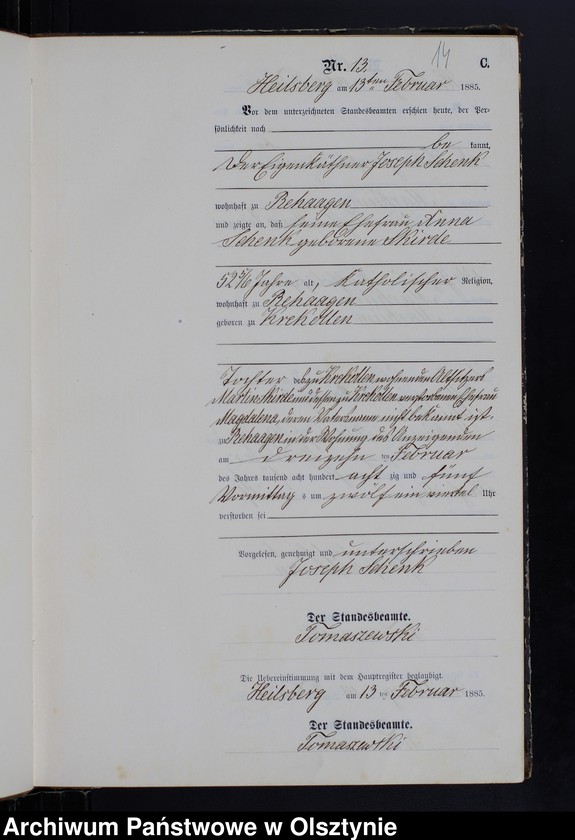 14
Nr. 13. C.
Heilsberg am 13ten Februar 1885.
Vor dem unterzeichneten Standesbeamten erschien heute, der Per-
sönlichkeit nach
be kannt,
der Eigenkäthner Joseph Schenk
wohnhaft zu Rehaagen
und zeigte an, daß seine Ehefrau Anna
Schenk geborene Skirde
52 5/6 Jahre alt, Katholischer Religion,
wohnhaft zu Rehaagen
geboren zu Krekollen
Tochter des zu Krekollen wohnenden Altsitzers
Martin Skirde und dessen zu Krekollen verstorbenen Ehefrau
Magdalena, deren Vatersname nicht bekannt ist
zu Rehaagen in der Wohnung des Anzeigenden
am dreizehn ten Februar
des Jahres tausend acht hundert acht zig und fünf
Vormittag s um zwölf ein viertel Uhr
verstorben sei
Vorgelesen, genehmigt und unterschrieben
Joseph Schenk
Der Standesbeamte.
Tomaszewski
Die Uebereinstimmung mit dem Hauptregister beglaubigt.
Heilsberg am 13 ten Februar 1885.
Der Standesbeamte.
Tomaszewski
Archiwum Państwowe w Olsztynie